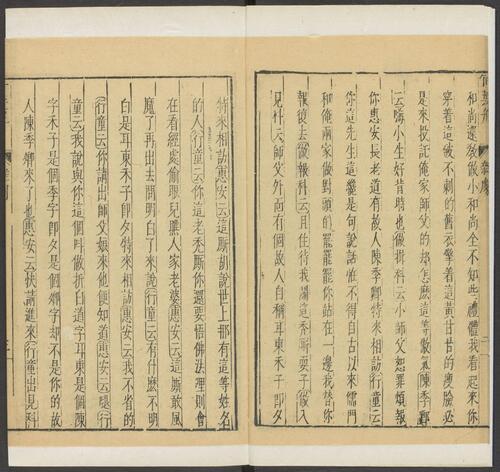 和尚還教做小和尚全不知此禮體我看起來你
穿着這破不剌的舊衣擎着這黃甘甘的瘦臉必
是來投託俺家師父的却怎麼這等傲氣陳季卿
云嗨小生好背時也做揖科云小師父恕罪煩報
你惠安長老道有故人陳季卿特來相訪行童云
你這先生這纔是句說話怪不得自古以來儒門
和俺兩家做對頭的罷罷罷你站在一邊我替你
報復去做報科云且住待我鬬這禿厮耍子做入
見科云師父外面有個故人自稱耳東禾子即夕
特來相訪惠安云這厮胡說世上那有這等姓名
的人行童云你這老禿厮你還要悟佛法理則會
在看經處偷眼兒瞧人家老婆惠安云這厮敢風
魔了再出去問明白了來說行童云有什麼不明
白是耳東禾子即夕特來相訪惠安云我不省的
行童云你請出師父娘來他便知道惠安云𠺕行
童云我說與你這個呌做折白道字耳東是個陳
字禾子是個季字即夕是個卿字却不是你的故
人陳季卿來了也惠安云快請進來行童出見科